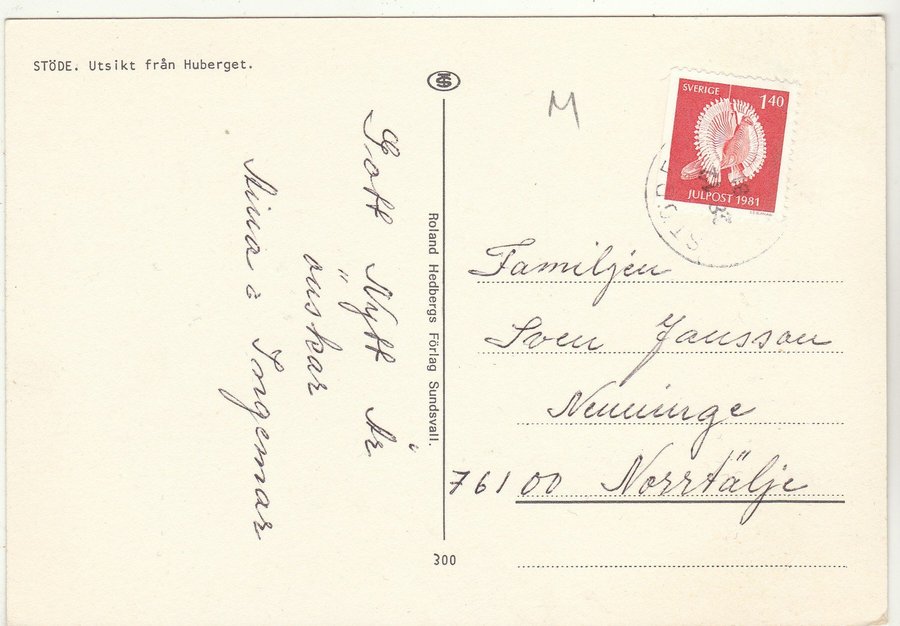 STÖDE. Utsikt från Huberget.
Gott Nytt År
önskar
Nina & Ingemar
Roland Hedbergs Förlag Sundsvall.
300
M
SVERIGE 1.40
JULPOST 1981
Familjen
Sven Jansson
Nenninge
76100 Norrtälje